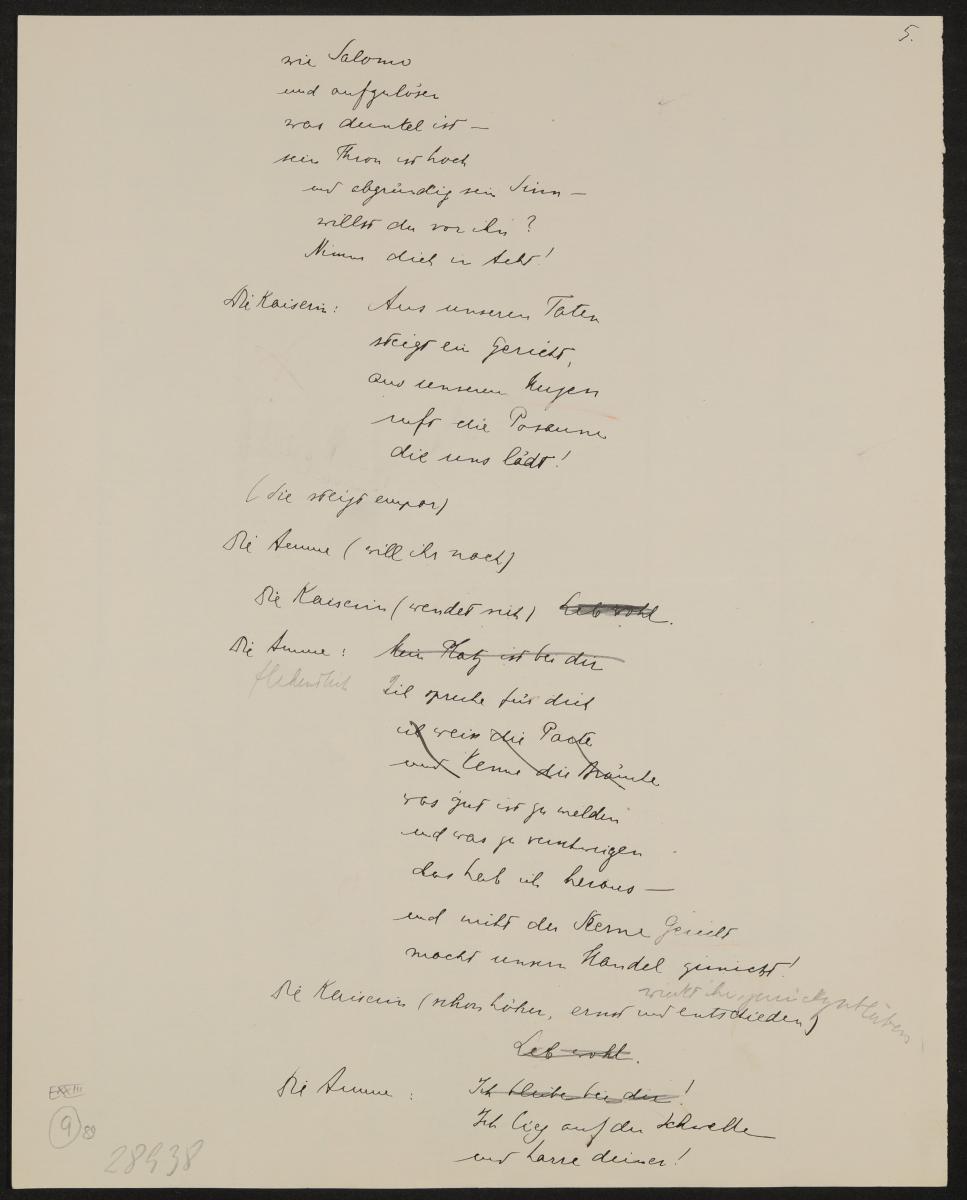 5.
wie Salomo
und aufzulösen
was dunkel ist —
sein Thron ist hoch
und abgründig sein Sinn —
willst du vor ihn?
Nimm dich in Acht!
Die Kaiserin: Aus unseren Taten
steigt ein Gericht,
aus unserem Herzen
ruft die Posaune
die uns lädt!
(Sie steigt empor)
Die Amme (will ihr nach)
Die Kaiserin (wendet sich) Leb wohl.
Die Amme: Mein Platz ist bei dir
flehentlich
Ich spreche für dich
ich weiss die Pacte
und kenne die Bräuche
was gut ist zu melden
und was zu verschweigen
das hab ich heraus —
und nicht der Sterne Gericht
macht unsern Handel zunicht!
winkt ihr zurückzubleiben
Die Kaiserin (schon höher, ernst und entschieden)
Leb wohl.
Die Amme: Ich bleibe bei dir!
Ich lieg auf der Schwelle
und harre deiner!
9
89
28438